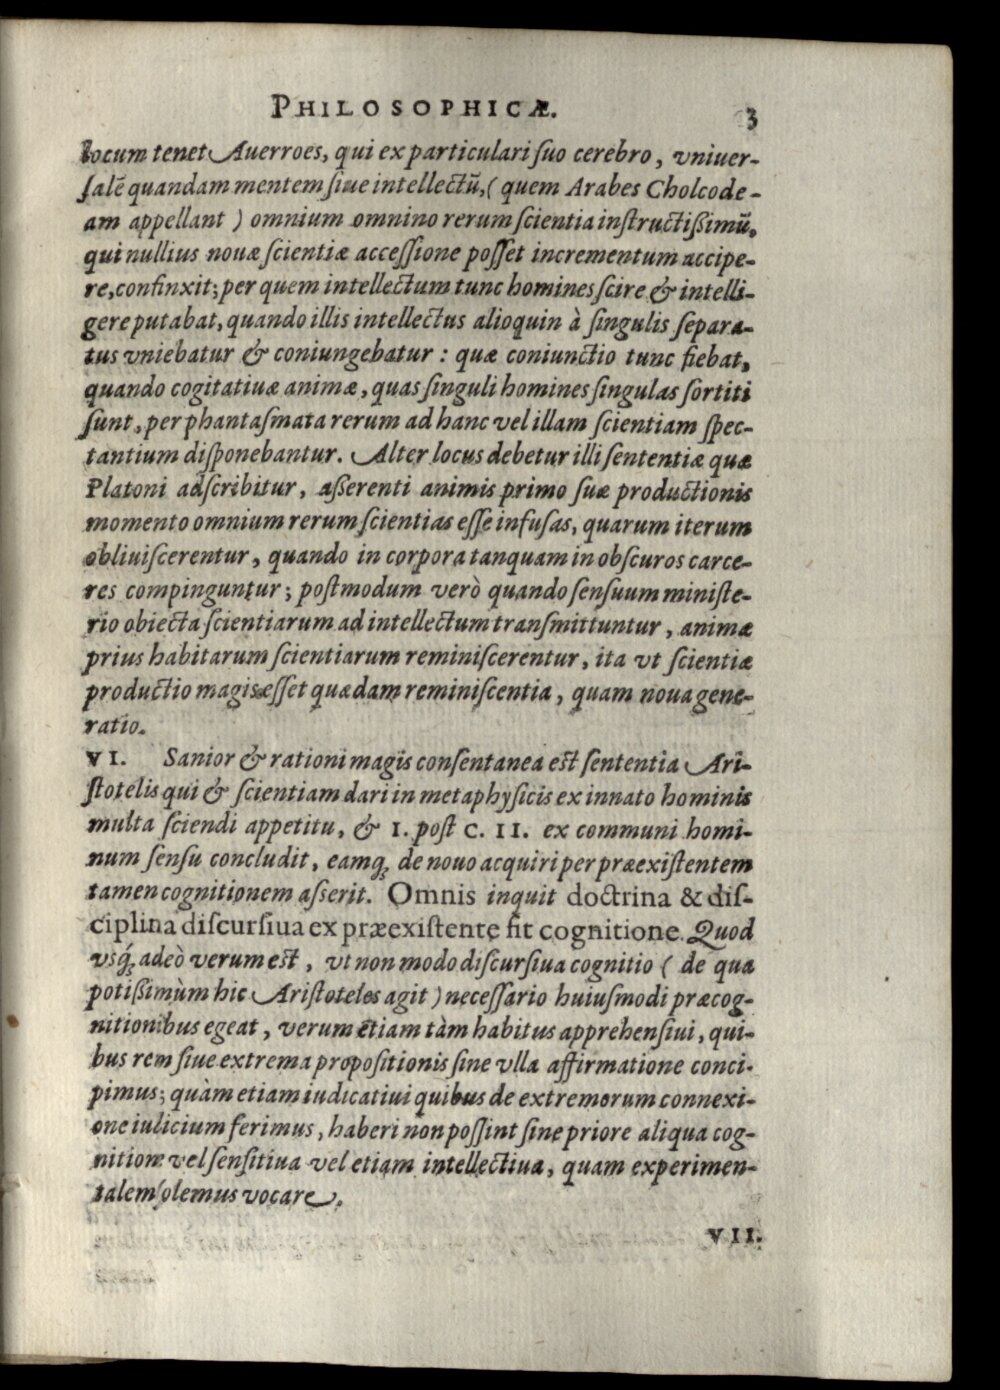 PHILOSOPHICÆ. 3
locum tenet Auerroes, qui ex particulari ſuo cerebro, vniuer-
ſalē quandam mentem ſiue intellectū, ( quem Arabes Cholcode-
am appellant ) omnium omnino rerum ſcientia inſtructißimū,
qui nullius nouæ ſcientiæ acceſſione poſſet incrementum accipe-
re, confinxit; per quem intellectum tunc homines ſcire & intelli-
gere putabat, quando illis intellectus alioquin à ſingulis ſepara-
tus vniebatur & coniungebatur : quæ coniunctio tunc fiebat,
quando cogitatiuæ animæ, quas ſinguli homines ſingulas ſortiti
ſunt, per phantaſmata rerum ad hanc vel illam ſcientiam ſpec-
tantium diſponebantur. Alter locus debetur illi ſententiæ quæ
Platoni adſcribitur, aßerenti animis primo ſuæ productionis
momento omnium rerum ſcientias eſſe infuſas, quarum iterum
obliuiſcerentur, quando in corpora tanquam in obſcuros carce-
res compinguntur; poſtmodum verò quando ſenſuum miniſte-
rio obiecta ſcientiarum ad intellectum tranſmittuntur, animæ
prius habitarum ſcientiarum reminiſcerentur, ita vt ſcientiæ
productio magis eſſet quædam reminiſcentia, quam noua gene-
ratio.
VI. Sanior & rationi magis conſentanea eſt ſententia Ari-
ſtotelis qui & ſcientiam dari in metaphyſicis ex innato hominis
multa ſciendi appetitu, & I. poſt C. II. ex communi homi-
num ſenſu concludit, eamq; de nouo acquiri per præexiſtentem
tamen cognitionem aſſerit. Omnis inquit doctrina & diſ-
ciplina diſcurſiua ex præexiſtente fit cognitione. Quod
vsq́; adeò verum eſt, vt non modo diſcurſiua cognitio ( de qua
potißimùm hic Ariſtoteles agit ) neceſſario huiuſmodi præcog-
nitionibus egeat, verum etiam tàm habitus apprehenſiui, qui-
bus rem ſiue extrema propoſitionis ſine vlla affirmatione conci-
pimus; quàm etiam iudicatiui quibus de extremorum connexi-
one iulicium ferimus, haberi non poſſint ſine priore aliqua cog-
nitione vel ſenſitiua vel etiam intellectiua, quam experimen-
talem ſolemus vocare.
VII.